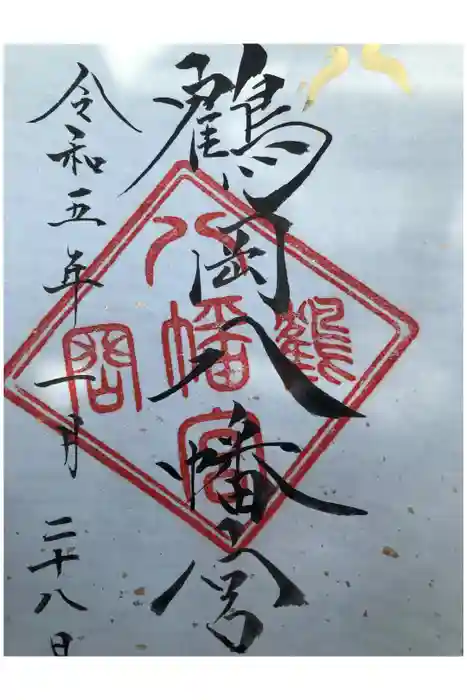 鶴岡八幡宮
鶴
八幡宮
岡
令和五年一月二十八日